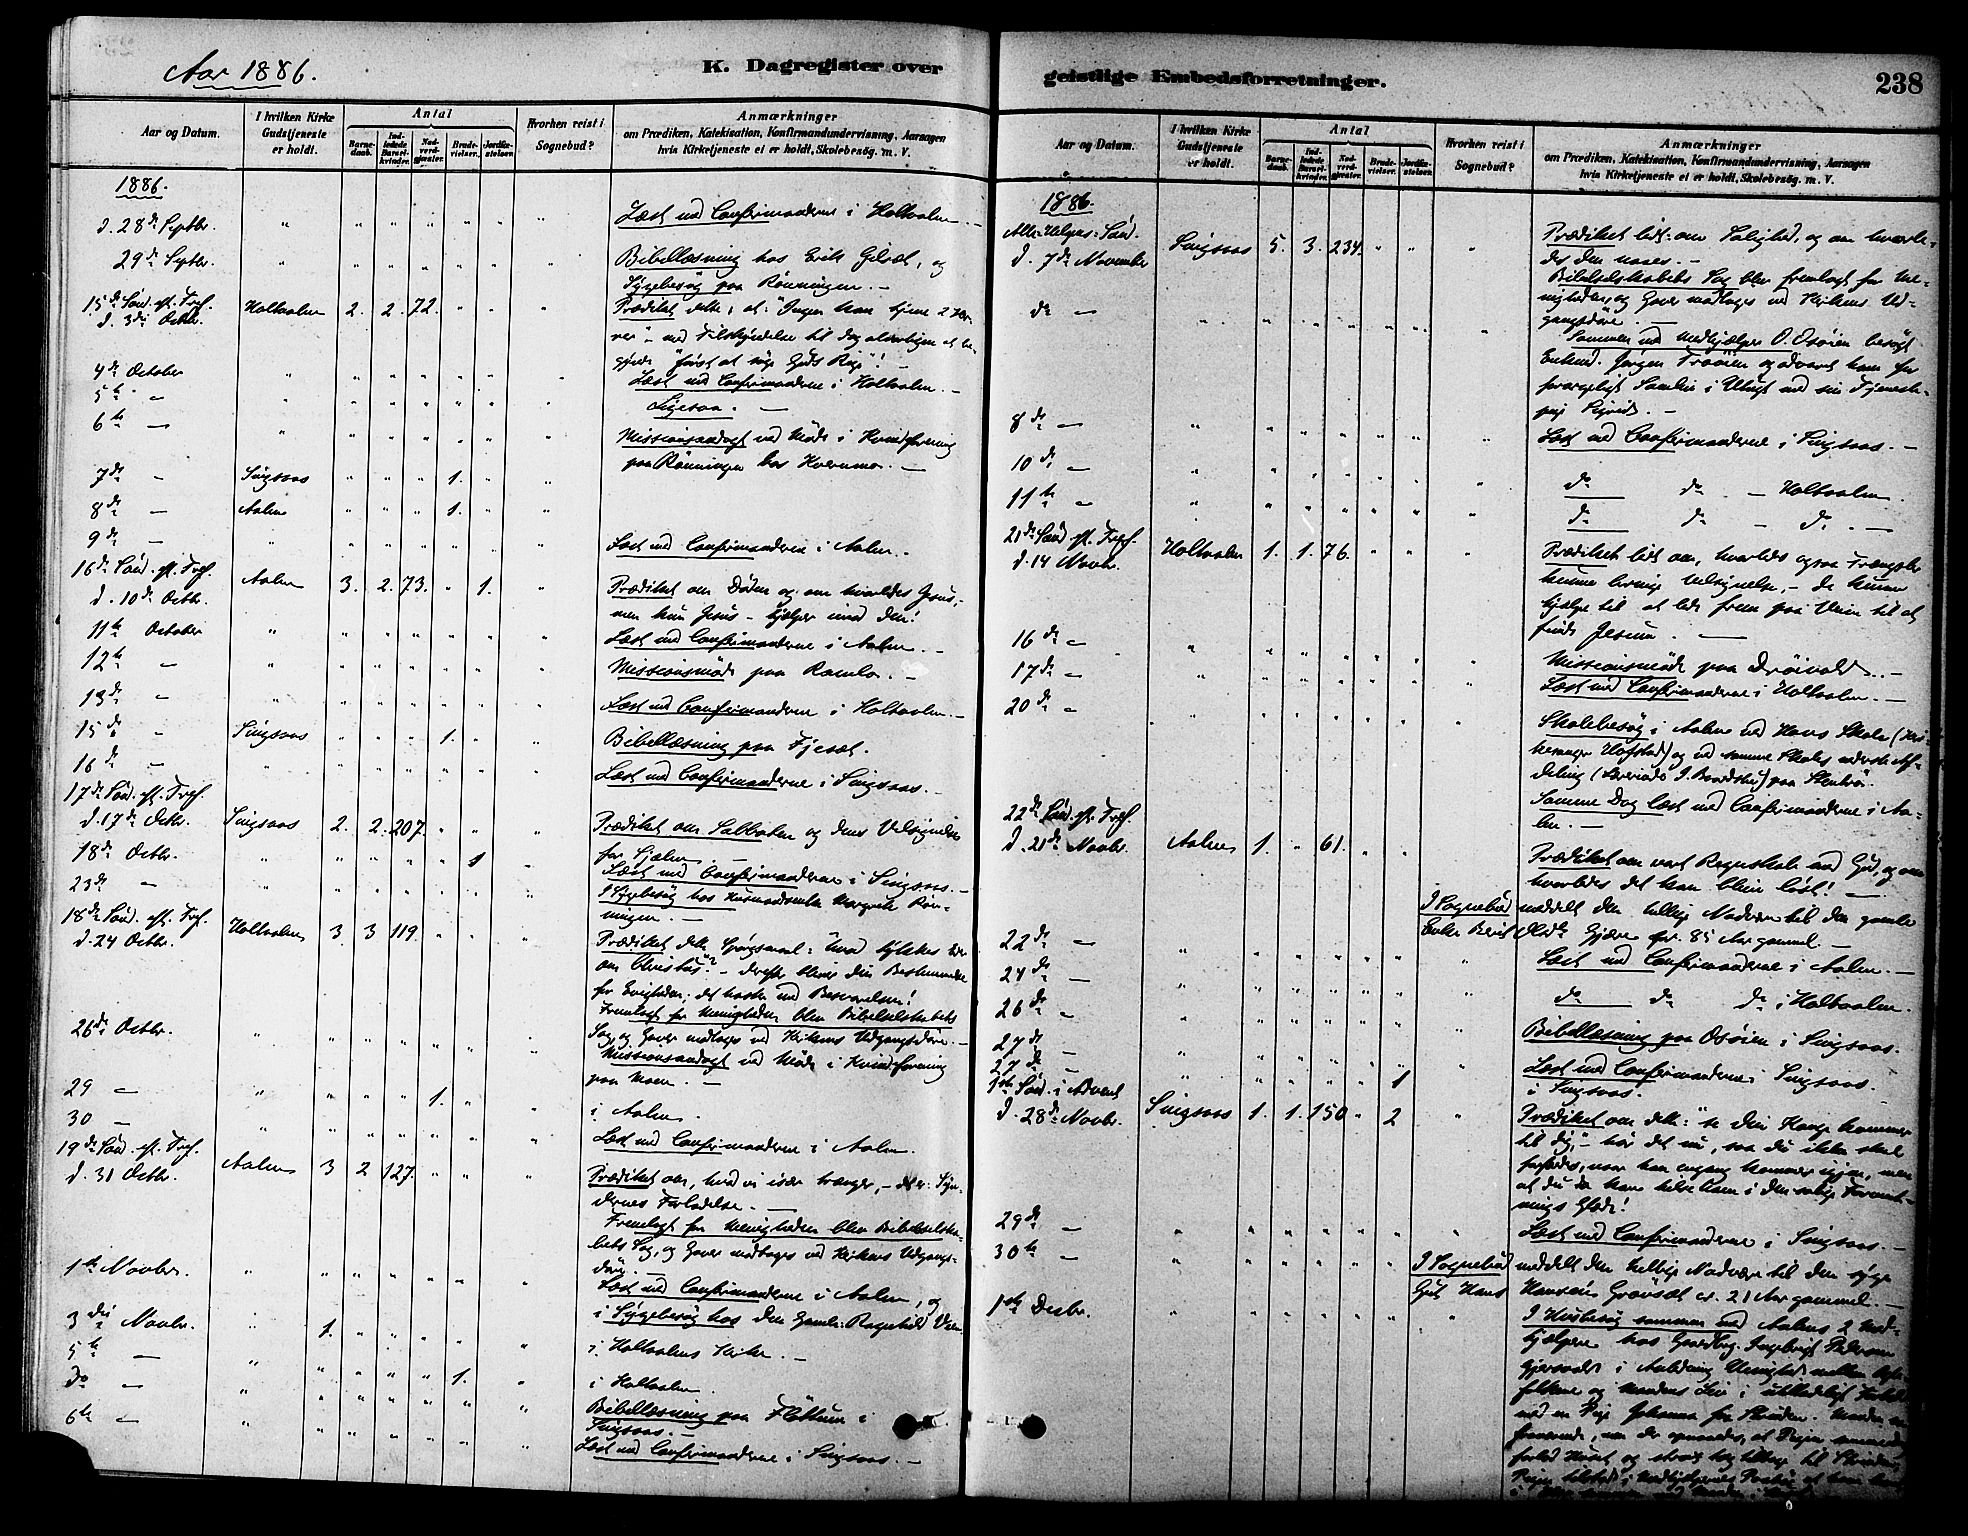 Aar 1886.
K. Dagregister over
geistlige Embedsforretninger.
238
Aar og Datum.
I hvilken Kirke Gudstjeneste er holdt.
Antal
Barnedaab.
Indledede Barselkvinder.
Nadverdgjester.
Brudevielser.
Jordfæstelser.
Hvorhen reist i Sognebud?
Anmærkninger
om Prædiken, Katekisation, Konfirmandundervisning, Aarsagen
hvis Kirketjeneste ei er holdt, Skolebesøg. m. V.
1886.
d. 28de Septbr. Læst med Confirmanderne i Holtaalen
29de Septbr. Bibellæsning hos Erik , og
Sygebesøg paa Rønningen. —
15de Sønd. eft. Tref.
d. 3die Octbr. Holtaalen 2. 2. 72. Prædiket dette, at "Ingen kan tjene 2 Her-
rer" – med Tilskyndelse til dog alvorligen at be-
gjynde "først at søge Guds Rige"!
4de October Læst med Confirmanderne i Holtaalen. —
5te — Ligesaa. —
6te — Missionsandagt ved Møde i Kvindeforening
paa Rønningen hos
7de — Singsaas 1.
8de — Aalen 1.
9de — Læst med Confirmanderne i Aalen.
16de Sønd. eft. Tref.
d. 10de Octbr. Aalen 3. 2. 73. 1. Prædiket om Døden og om hvorledes Jesus,
men kun Jesus – hjælper imod den!
11te October Læst med Confirmanderne i Aalen. —
12te — Missionsmøde paa Ramlo. —
13de — Læst med Confirmanderne i Holtaalen. —
15de — Singsaas 1. Bibellæsning paa Fjeset.
16de — Læst med Confirmanderne i Singsaas. —
17de Sønd. eft. Tref.
d. 17de Octbr. Singsaas 2. 2. 207. Prædiket om Sabbaten og dens Velsignelse
for Sjælen. —
18de Octbr. 1 Læst med Confirmanderne i Singsaas. —
23de — I Sygebesøg hos Røn-
ningen. —
18de Sønd. eft. Tref.
d. 24 Octbr. Holtaalen 3. 3 119. Prædiket dette Spørgsmaal: "hvad tykkes Eder
om Christus"? – derefter bliver din Bestemmelse
for Evigheden; det haster med Besvarelsen!
Fremlagt for Menigheden blev Bibelselskabets
Sag, og Gaver modtoges ved Kirkens Udgangsdøre. —
26de Octbr. Missionsandagt ved Møde i Kvindeforening
paa Moen. —
29 — 1. i Aalen.
30 — Læst med Confirmanderne i Aalen.
19de Sønd. eft. Tref.
d. 31 Octbr. Aalen 3 2 127. Prædiket om, hvad vi især trænger, – det er: Syn-
dernes Forladelse. —
Fremlagt for Menigheden blev Bibelselska-
bets Sag, og Gaver modtoges ved Kirkens Udgangs-
døre. —
1ste Novbr. Læst med Confirmanderne i Aalen, og
i Sygebesøg hos den Gamle Ragnhild
3die Novbr. 1. i Holtaalens Kirke. —
5te —
do — 1. i Holtaalen.
6te — Bibellæsning paa Fløttum i
Singsaas. —
Læst med Confirmanderne i Singsaas. —
Aar og Datum.
I hvilken Kirke Gudstjeneste er holdt.
Antal
Barnedaab.
Indledede Barselkvinder.
Nadverdgjester.
Brudevielser.
Jordfæstelser.
Hvorhen reist i Sognebud?
Anmærkninger
om Prædiken, Katekisation, Konfirmandundervisning, Aarsagen
hvis Kirketjeneste ei er holdt, Skolebesøg. m. V.
1886.
Alle-Helgens-Sønd.
d. 7de November Singsaas 5. 3. 234. Prædiket lidt om Salighed, og om hvorle-
des den naaes. —
Bibelselskabets Sag blev fremlagt for Me-
nigheden og Gaver modtoges ved Kirkens Ud-
gangsdøre. —
do — Sammen med Medhjælper O. Osøien besøgt
Enkemd. Jørgen Trøøien og advaret ham for
forargeligt Samliv i Utugt med sin Tjeneste-
pige Sigrid. —
8de — Læst med Confirmanderne i Singsaas. —
10de — do do — Holtaalen.
11te — do do — do. —
21de Sønd. eft. Tref.
d. 14 Novbr. Holtaalen 1. 1. 76. Prædiket lidt om, hvorledes ogsaa Trængsler
kunne bringe Velsignelse, – de kunne
hjælpe til at lede frem paa Veien til at
finde Jesum. —
16de — Missionsmøde paa Drøivold. —
17de — Læst med Confirmanderne i Holtaalen. —
20de — Skolebesøg i Aalen ved Hovs Skole (Kir-
kesanger Hofstad) og ved samme Skoles nederste Af-
deling
Samme Dag læst med Confirmanderne i Aa-
len. —
22de Sønd. eft. Tref.
d. 21de Novbr. Aalen 1. 61. Prædiket om vort Regnskab med Gud, og om
hvorledes det kan blive løst! —
I Sognebud meddelt den hellige Nadvere til den gamle
Enke Berit Olsdr. Gjære opr. 85 Aar gammel. —
22de — Læst med Confirmanderne i Aalen. —
24de — do do do i Holtaalen.
26de — Bibellæsning paa Osøien i Singsaas.
27de — Læst med Confirmanderne i Singsaas.
27de — 1 i Singsaas.
1ste Sønd. i Advent
d. 28de Novbr. Singsaas 1. 1. 150 2 Prædiket om dette: "se din Konge kommer
til dig", – hør det nu, saa du ikke skal
forfærdes, naar han engang kommer igjen, men
at du da kan hilse ham i den salige Forvent-
nings Glæde!
29de — Læst med Confirmanderne i Singsaas. —
30te — I Sognebud meddelt den hellige Nadvere til den syge
Gut Hans Hansen Grøvset cr. 21 Aar gammel. —
1ste Decbr. I Husbesøg sammen med Aalens 2 Med-
hjælpere hos Gaardbrg. Ingebrigt Pedersen
i Anledning Uenighed mellem Ægte-
folkene og Mandens Liv i utilladeligt Forhold
med en Pige Johanna fra